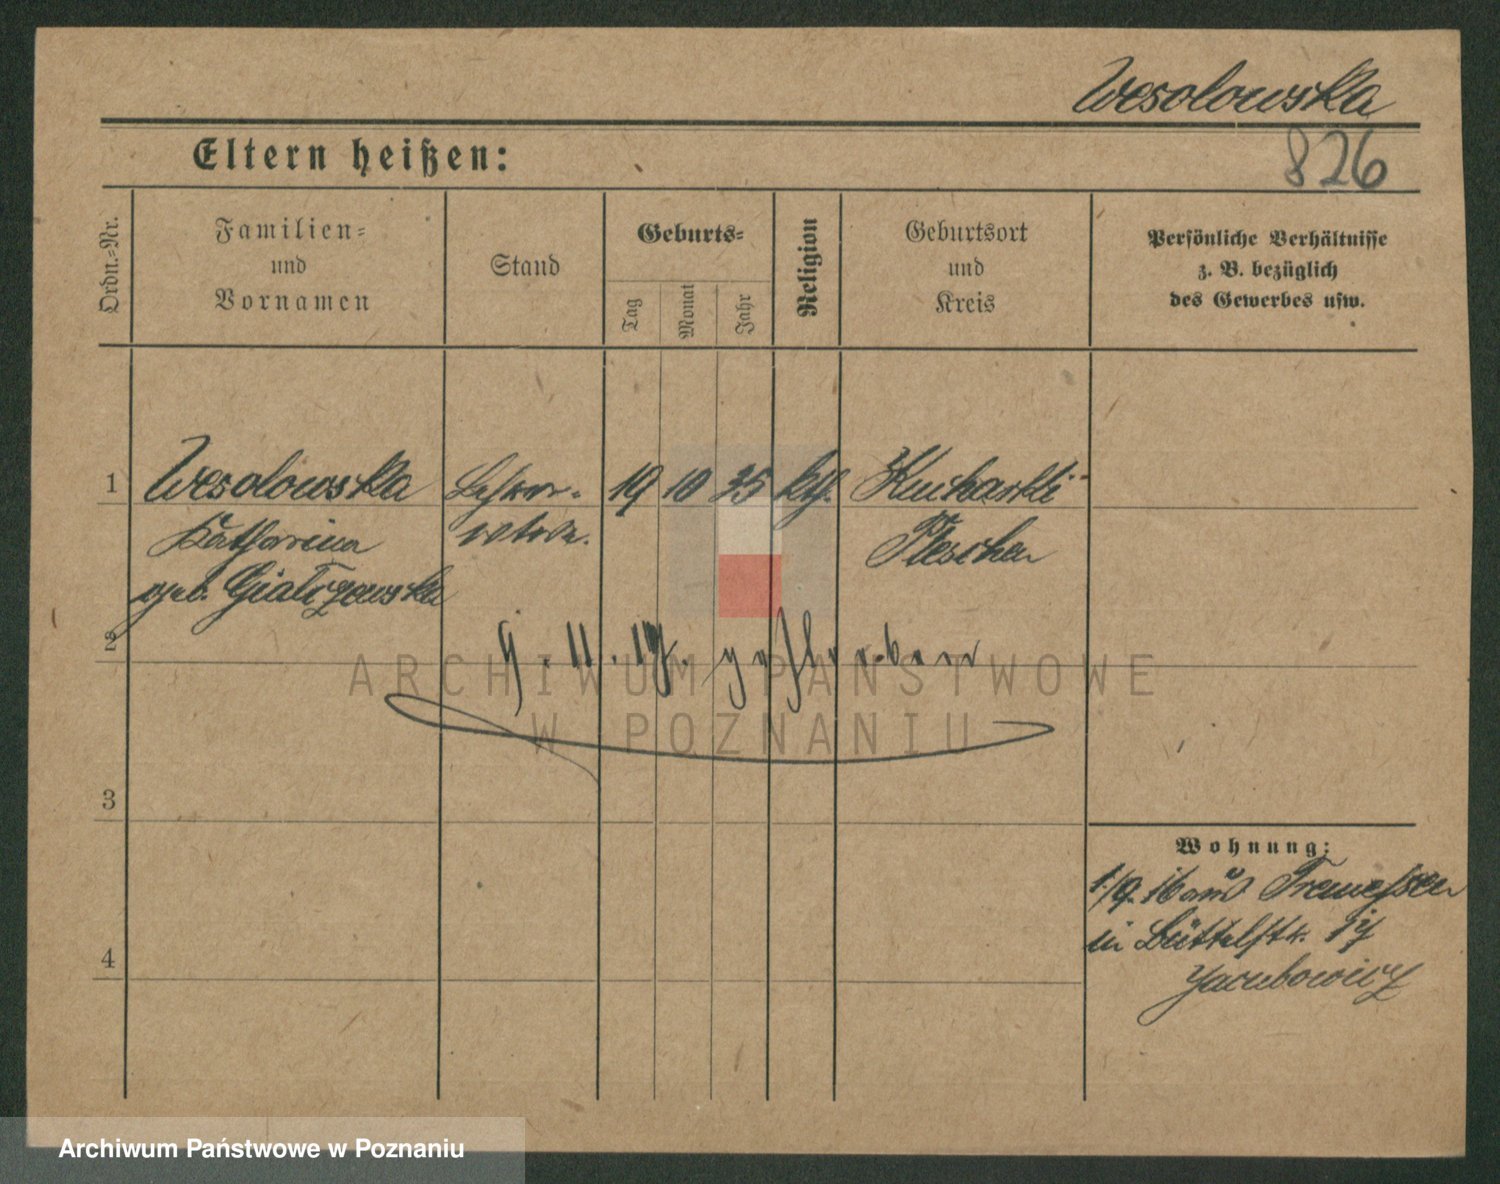 Wesolowska
Eltern heißen:
826
Ordn.-Nr.
Familien-
und
Vornamen
Stand
Geburts-
Tag
Monat
Jahr
Religion
Geburtsort
und
Kreis
Persönliche Verhältnisse
z. B. bezüglich
des Gewerbes usw.
1 Wesolowska Lehrer- 19 10 35 kth. Kucharki
Katharina witwe. Pleschen
geb.
2
9. 11. 17. gestorben
ARCHIWUM PAŃSTWOWE
W POZNANIU
3
Wohnung:
1./9. 16 aus Tremessen
in Büttelstr. 17
Jacubowicz
4
Archiwum Państwowe w Poznaniu